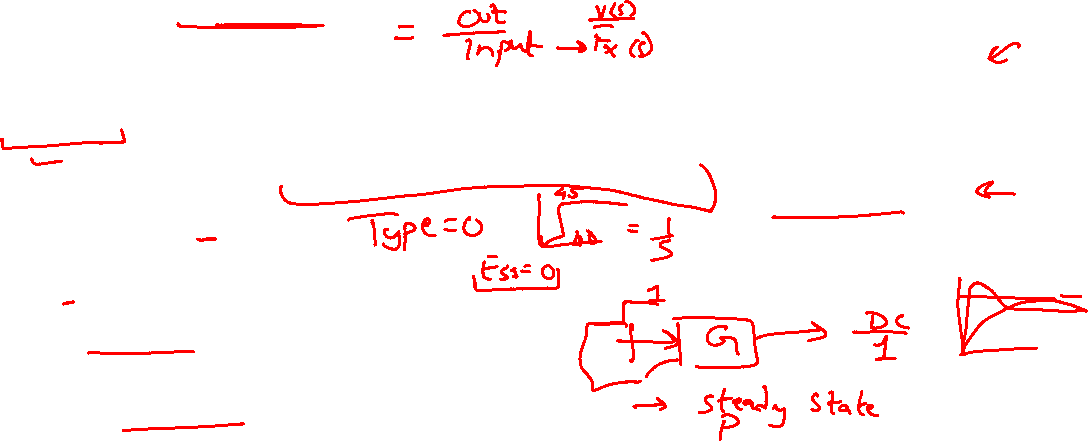 = Out/Input → V(s)/Fx(s)
45
Type=0 = 1/s
Ess=0
1
G DC/1
→ steady state
P